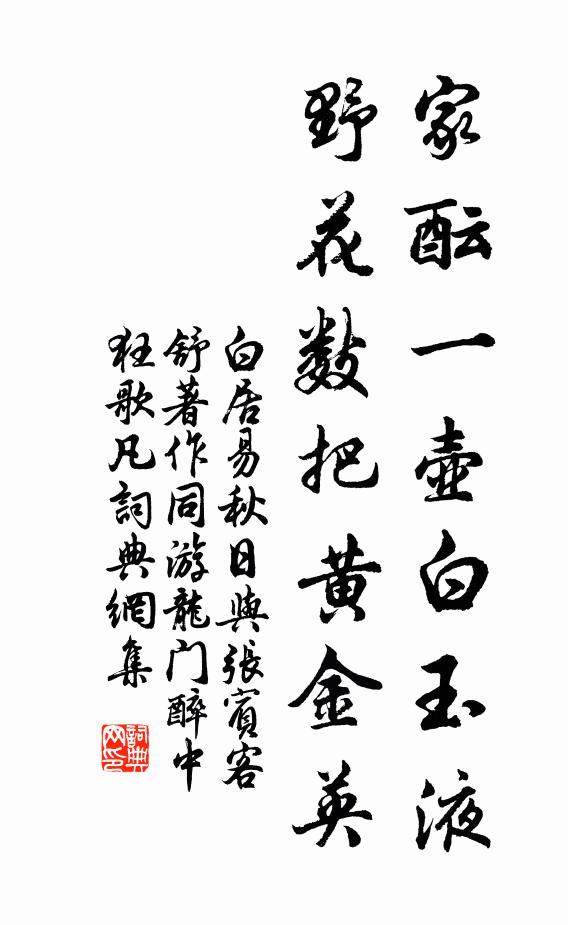 家酝一壶白玉液
野花数把黄金英
白居易秋日與張賓客
舒著作同游龍门醉中
狂歌凡詞典網集
詞典
网印